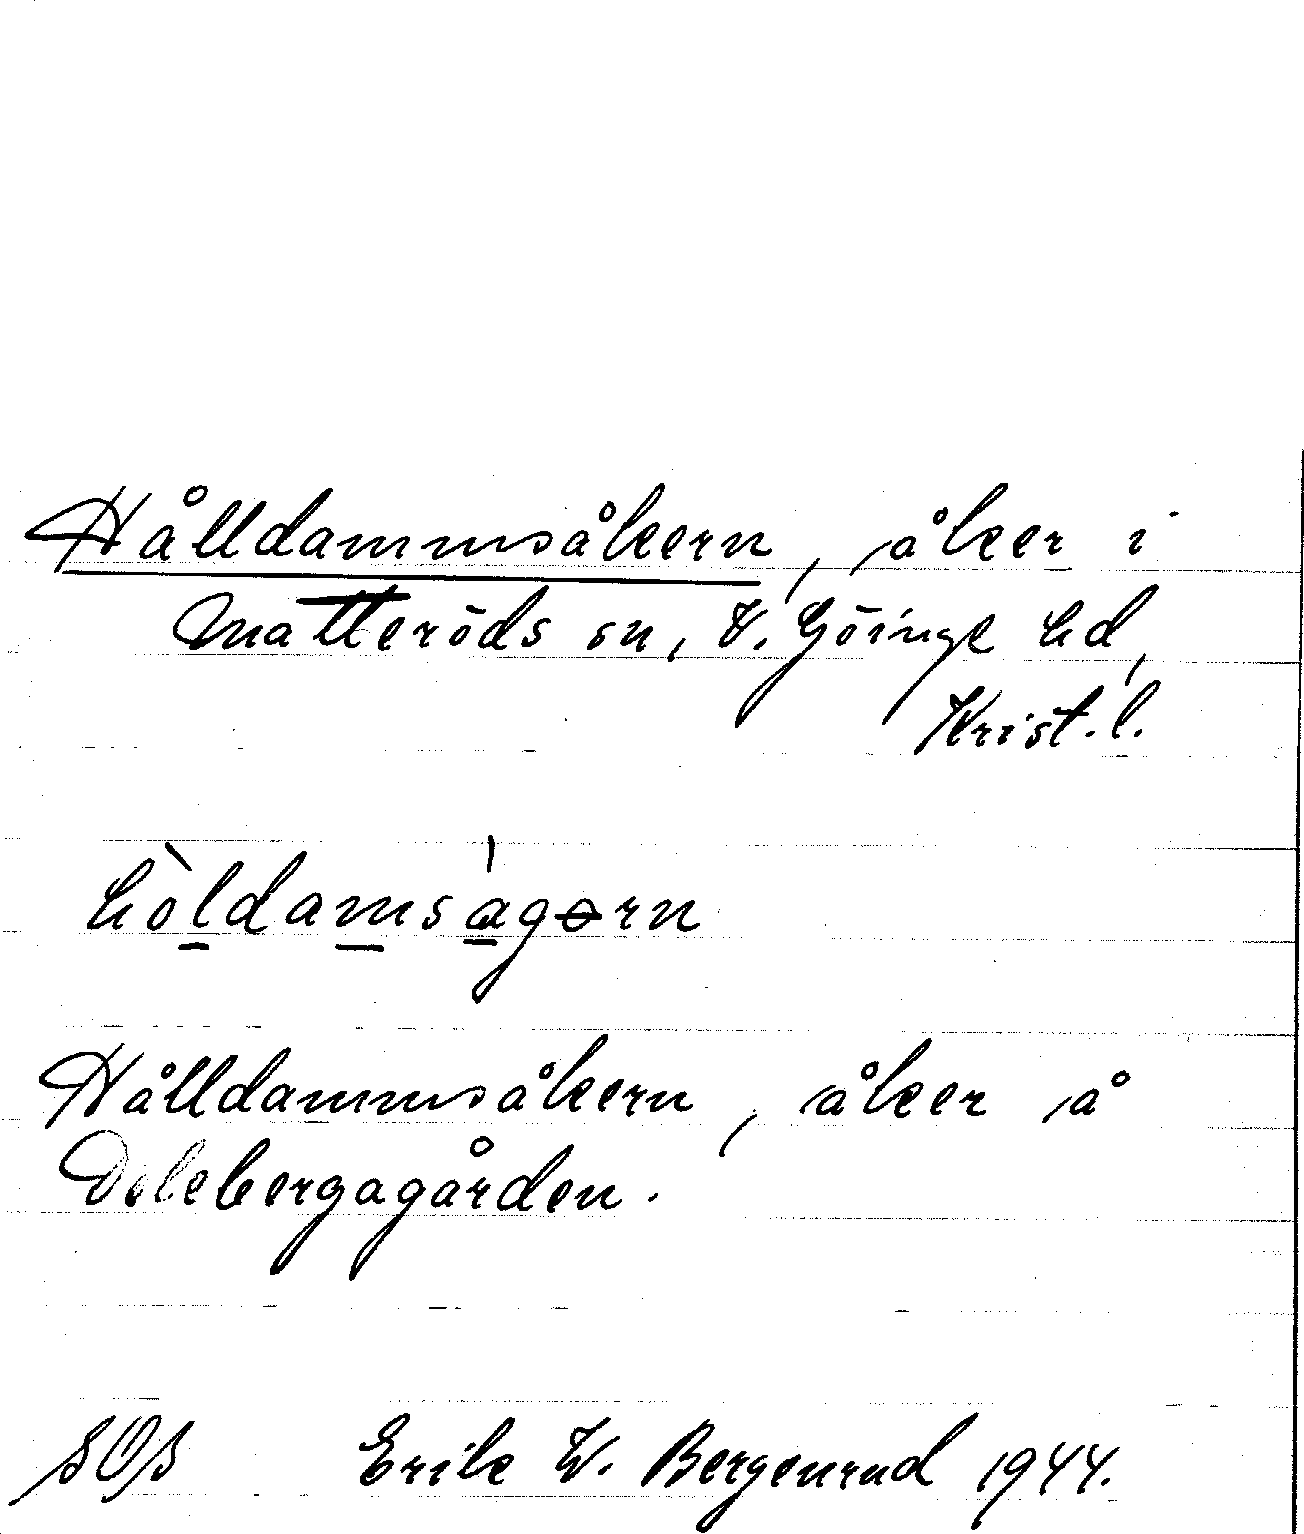 Hålldammsåkern, åker i
Matteröds sn, V. Göinge hd,
Krist.l.
hòldamságɵrn
Hålldammsåkern, åker å
Dalebergagården.
SOS Erik W. Bergenrud 1944.